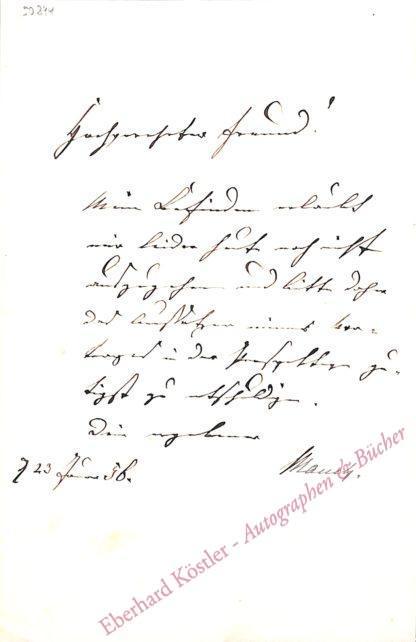 59241
Hochgeehrter Freund!
Mein Befinden erlaubt
mir leider heute noch nicht
auszugehen und bitte daher
das Aussetzen meines Vor-
trages in der Perspektive gü-
tigst zu entschuldigen.
Dein ergebener
23 56.
Eberhard Köstler - Autographen & Bücher